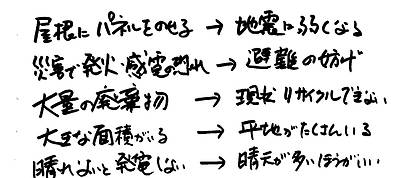 屋根にパネルをのせる → 地震に弱くなる
災害で発火・感電の恐れ → 避難の妨げ
大量の廃棄物 → 現状リサイクルできない
大きな面積がいる → 平地がたくさんいる
晴れないと発電しない → 晴天が多いほうがいい